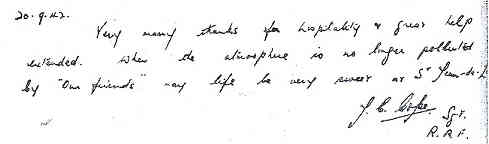 20.9.42.
Very many thanks for hospitality & great help
extended. When the atmosphere is no longer polluted
by "Our friends" may life be very sweet at St Jean-de-L
Sgt.
R.A.F.